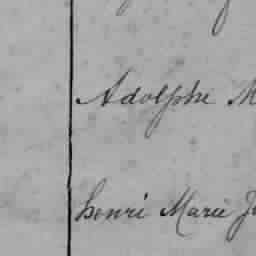 Adolphe M
henri Marie J